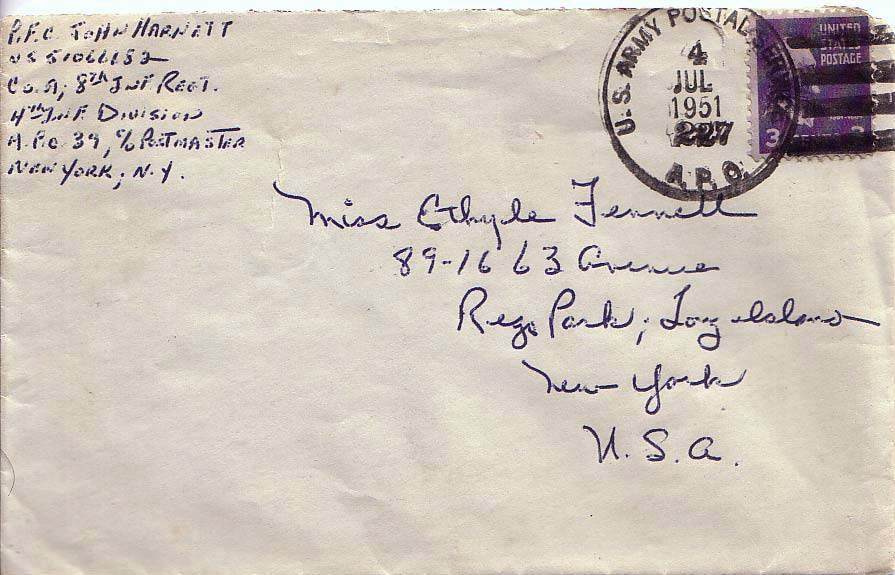 P.F.C. JOHN HARNETT
US 51066152
Co. A, 8th INF REGT.
4th INF DIVISION
A.P.O 39, c/o POSTMASTER
NEW YORK, N.Y.
U.S. ARMY POSTAL SERVICE
4
JUL
1951
227
A.P.O.
UNITED
STATES
POSTAGE
3
Miss Ethyle Fennell
89-16 63 Avenue
Rego Park, Long Island
New York
U.S.A.